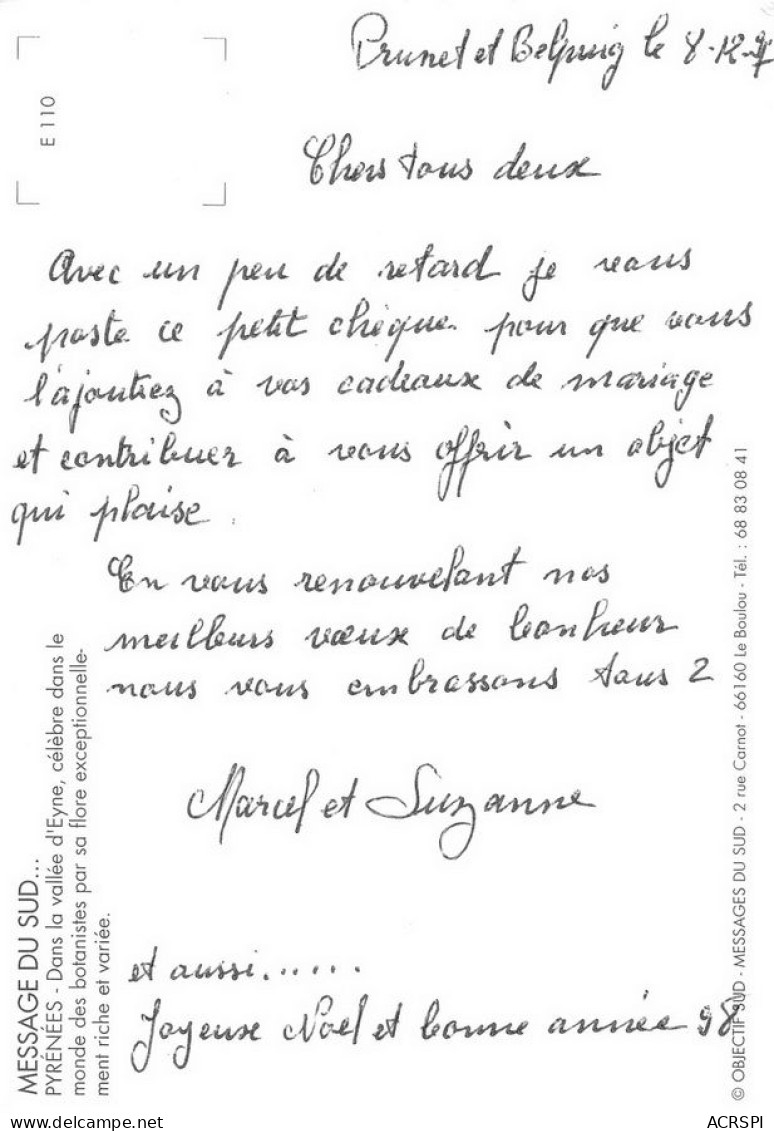 Prunet et Belpuig le 8-12-97
E 110
Chers tous deux
Avec un peu de retard je vous
poste ce petit chèque pour que vous
l'ajoutiez à vos cadeaux de mariage
et contribuer à vous offrir un objet
qui plaise.
En vous renouvelant nos
meilleurs vœux de bonheur
nous vous embrassons tous 2
Marcel et Suzanne
et aussi......
Joyeuse Noël et bonne année 98
MESSAGE DU SUD...
PYRÉNÉES - Dans la vallée d'Eyne, célèbre dans le
monde des botanistes par sa flore exceptionnelle-
ment riche et variée.
© OBJECTIF SUD - MESSAGES DU SUD - 2 rue Carnot - 66160 Le Boulou - Tél. : 68 83 08 41
ACRSPI